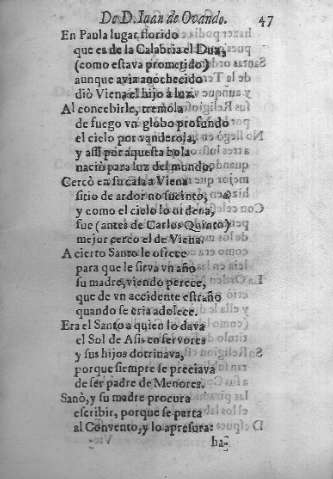 De D. Iuan de Ovando. 47
En Paula lugar florido
que es de la Calabria el Dua,
(como estava prometido)
aunque avia anochecido
diò Viena el hijo à luz.
Al concebirle, tremola
de fuego vn globo profundo
el cielo por vanderola,
y assi por aquesta bola
naciò para luz del mundo.
Cercò en su casa à Viena
sitio de ardor no sucinto,
y como el cielo lo ordena,
fue (antes de Carlos Quinto)
mejor cerco el de Viena.
A cierto Santo le ofrece
para que le sirva vn año
su madre, viendo perece,
que de vn accidente estraño
quando se cria adolece.
Era el Santo a quien lo dava
el Sol de Asis en fervores
y sus hijos dotrinava,
porque siempre se preciava
de ser padre de Menores.
Sanò, y su madre procura
escribir, porque se parta
al Convento, y lo apresura:
ha-